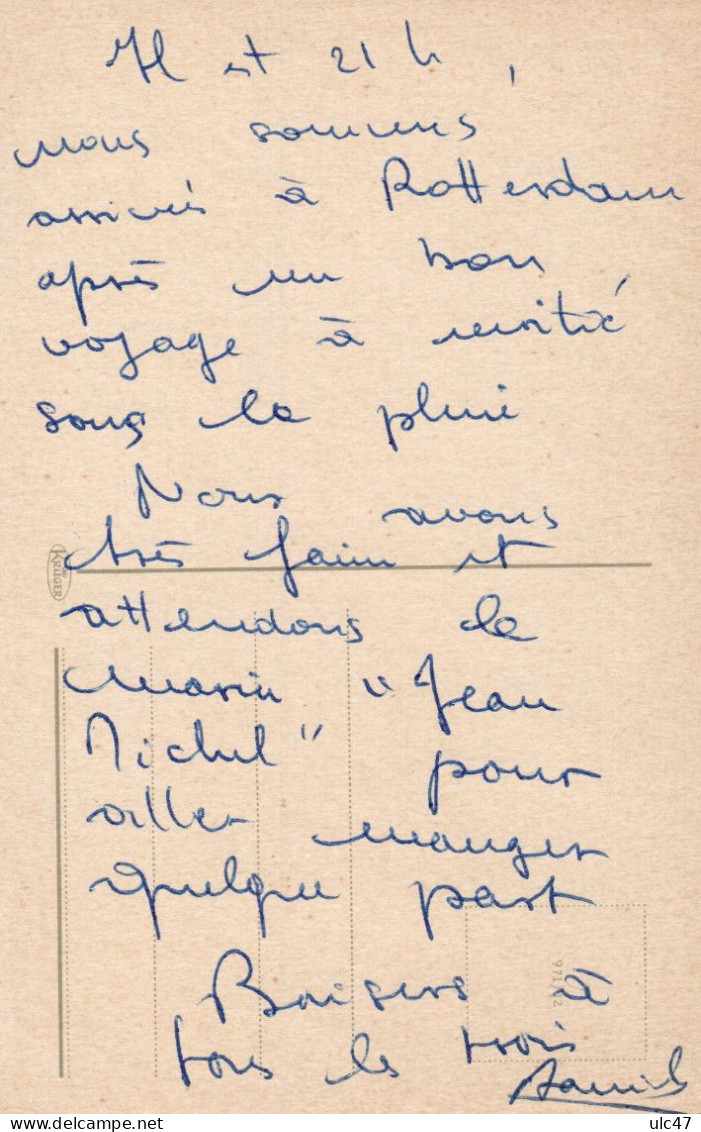 Il est 21 h,
nous sommes
arrivés à Rotterdam
après un bon
voyage à moitié
sous la pluie
Nous avons
très faim et
KRÜGER
attendons le
marin "Jean
Michel" pour
aller manger
quelque part
Baisers à
tous les trois
ulc47